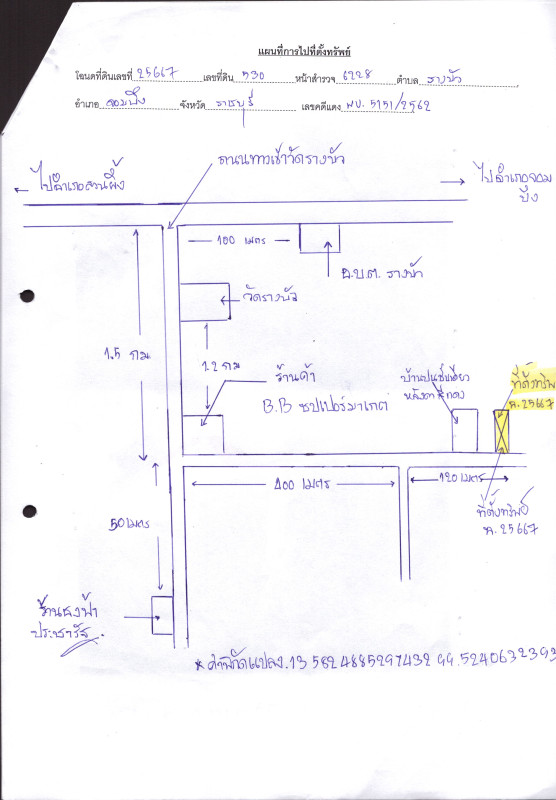 แผนที่การไปที่ตั้งทรัพย์
โฉนดที่ดินเลขที่ 25667 เลขที่ดิน 530 หน้าสำรวจ 6228 ตำบล รางบัว
อำเภอ จอมบึง จังหวัด ราชบุรี เลขคดีแดง ผบ. 5151/2562
ถนนทางเข้าวัดรางบัว
ไปอำเภอสวนผึ้ง
ไปอำเภอจอม
บึง
100 เมตร
อ.บ.ต. รางบัว
วัดรางบัว
1.5 กม
1.2 กม
ร้านค้า
B.B ซุปเปอร์มาเกต
หลังคาสีแดง
ที่ตั้งทรัพ
ฉ. 25667
400 เมตร
120 เมตร
ที่ตั้งทรัพย์
ฉ. 25667
50 เมตร
ร้านธงฟ้า
ประชารัฐ
*ค่าพิกัดแปลง. 13.5824885297432 99.5240632393